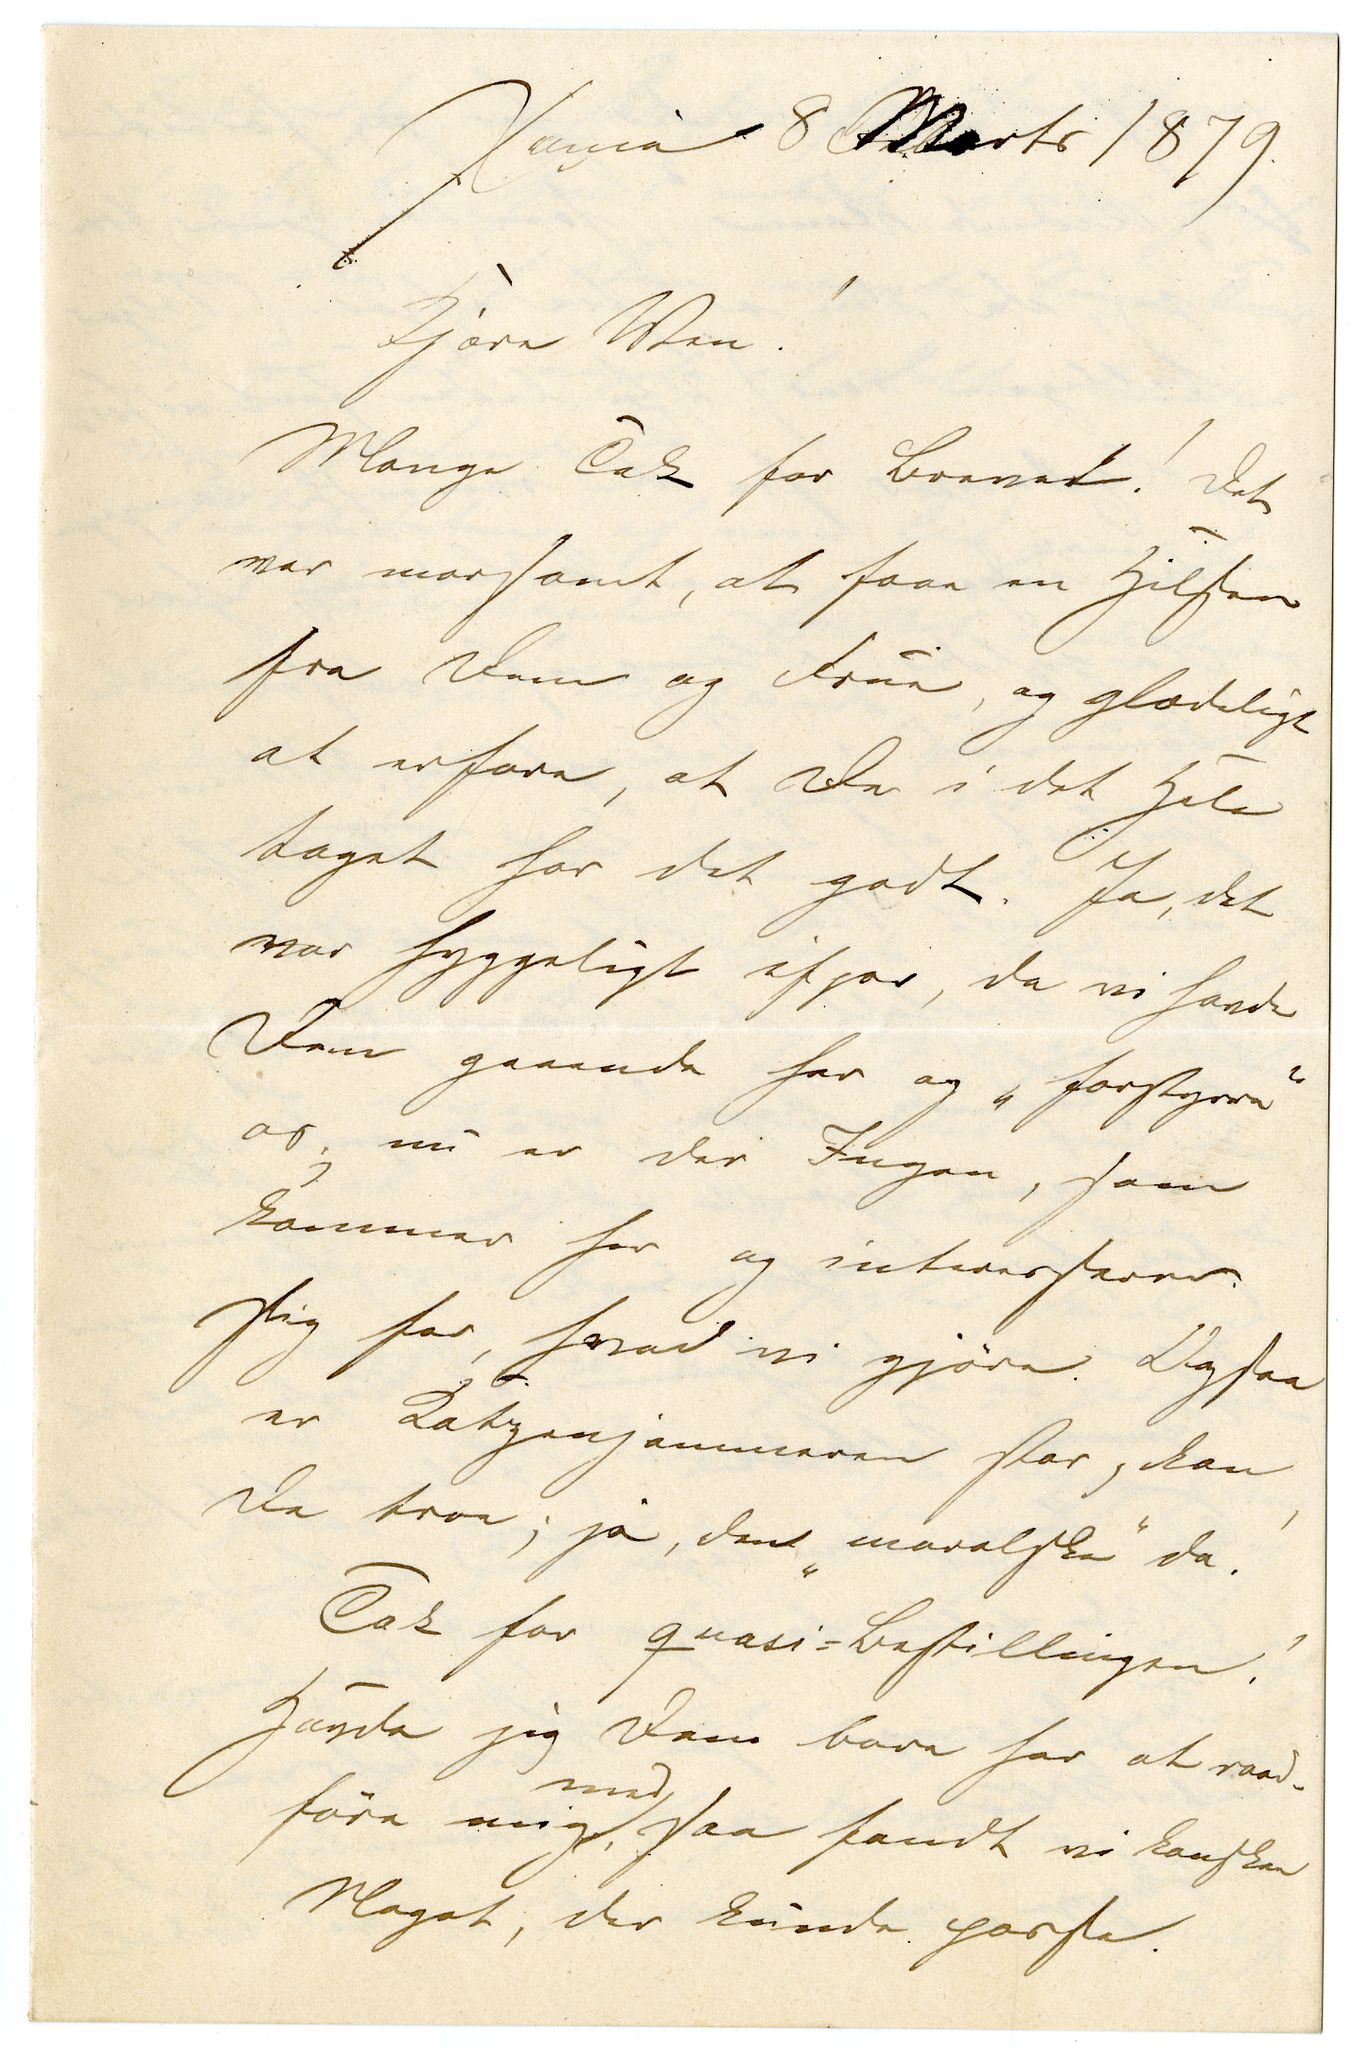 Xania 8 Marts 1879.
Kjære Ven!
Mange Tak for Brevet! Det
var morsomt, at faae en Hilsen
fra Dem og Frue, og glædeligt
at erfare, at De i det Hele
taget har det godt. Ja, det
var hyggeligt ifjor, da vi havde
Dem gaaende her og „forstyrre“
os; nu er der Ingen, som
kommer her og interesserer
sig for, hvad vi gjöre. Ogsaa
er Katzenjammeren stor, kan
De troe; ja, den „moralske“ da!
Tak for quasi=Bestillingen!
Havde jeg Dem bare her at raad-
före mig med, saa fandt vi kanskee
Noget, der kunde passe.